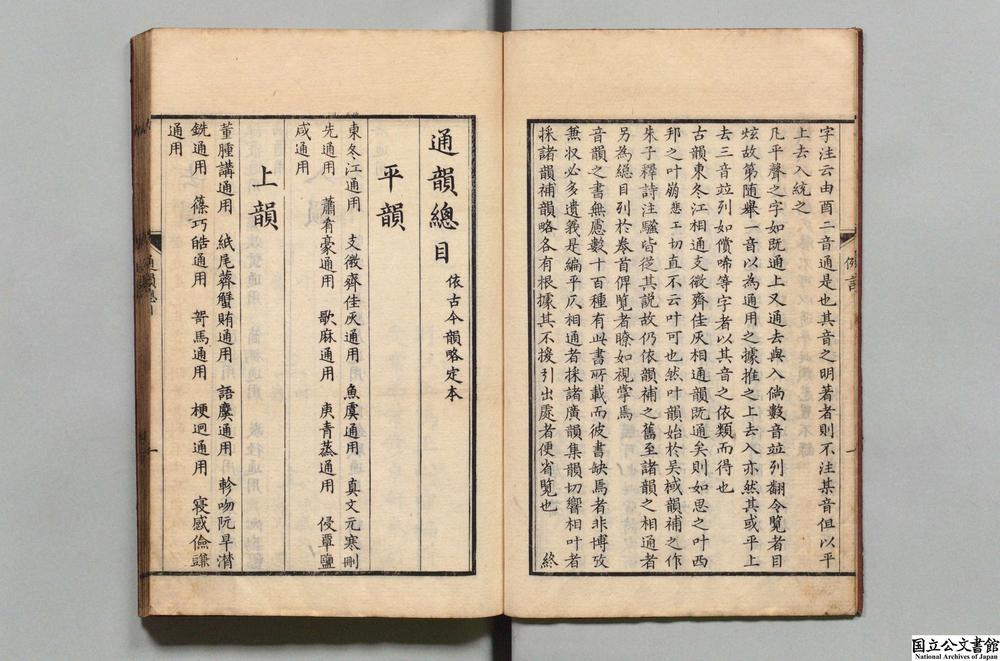 字注云由酉二音通是也其音之明著者則不注某音但以平
上去入統之
凡平聲之字如既通上又通去與入倘數音並列翻令覽者目
炫故第随舉一音以為通用之據推之上去入亦然其或平上
去三音並列如償唏等字者以其音之依類而得也
古韻東冬江相通支微齊佳灰相通韻既通矣則如思之叶西
邦之叶崩悲工切直不云叶可也然叶韻始於吳棫韻補之作
朱子釋詩注騷皆從其説故仍依韻補之舊至諸韻之相通者
另為總目列於卷首俾覽者瞭如視掌焉
音韻之書無慮數十百種有此書所載而彼書缺焉者非博攷
兼收必多遺義是編平仄相通者採諸廣韻集韻切響相叶者
採諸韻補韻略各有根據其不援引出處者便省覽也 終
例言
一
通韻總目 依古今韻略定本
平韻
東冬江通用 支微齊佳灰通用 魚虞通用 真文元寒刪
先通用 蕭肴豪通用 歌麻通用 庚青蒸通用 侵覃鹽
咸通用
上韻
董腫講通用 紙尾薺蟹賄通用 語麌通用 軫吻阮旱潸
銑通用 篠巧皓通用 哿馬通用 梗迥通用 寑感儉豏
通用
通韻總目
一
国立公文書館
National Archives of Japan